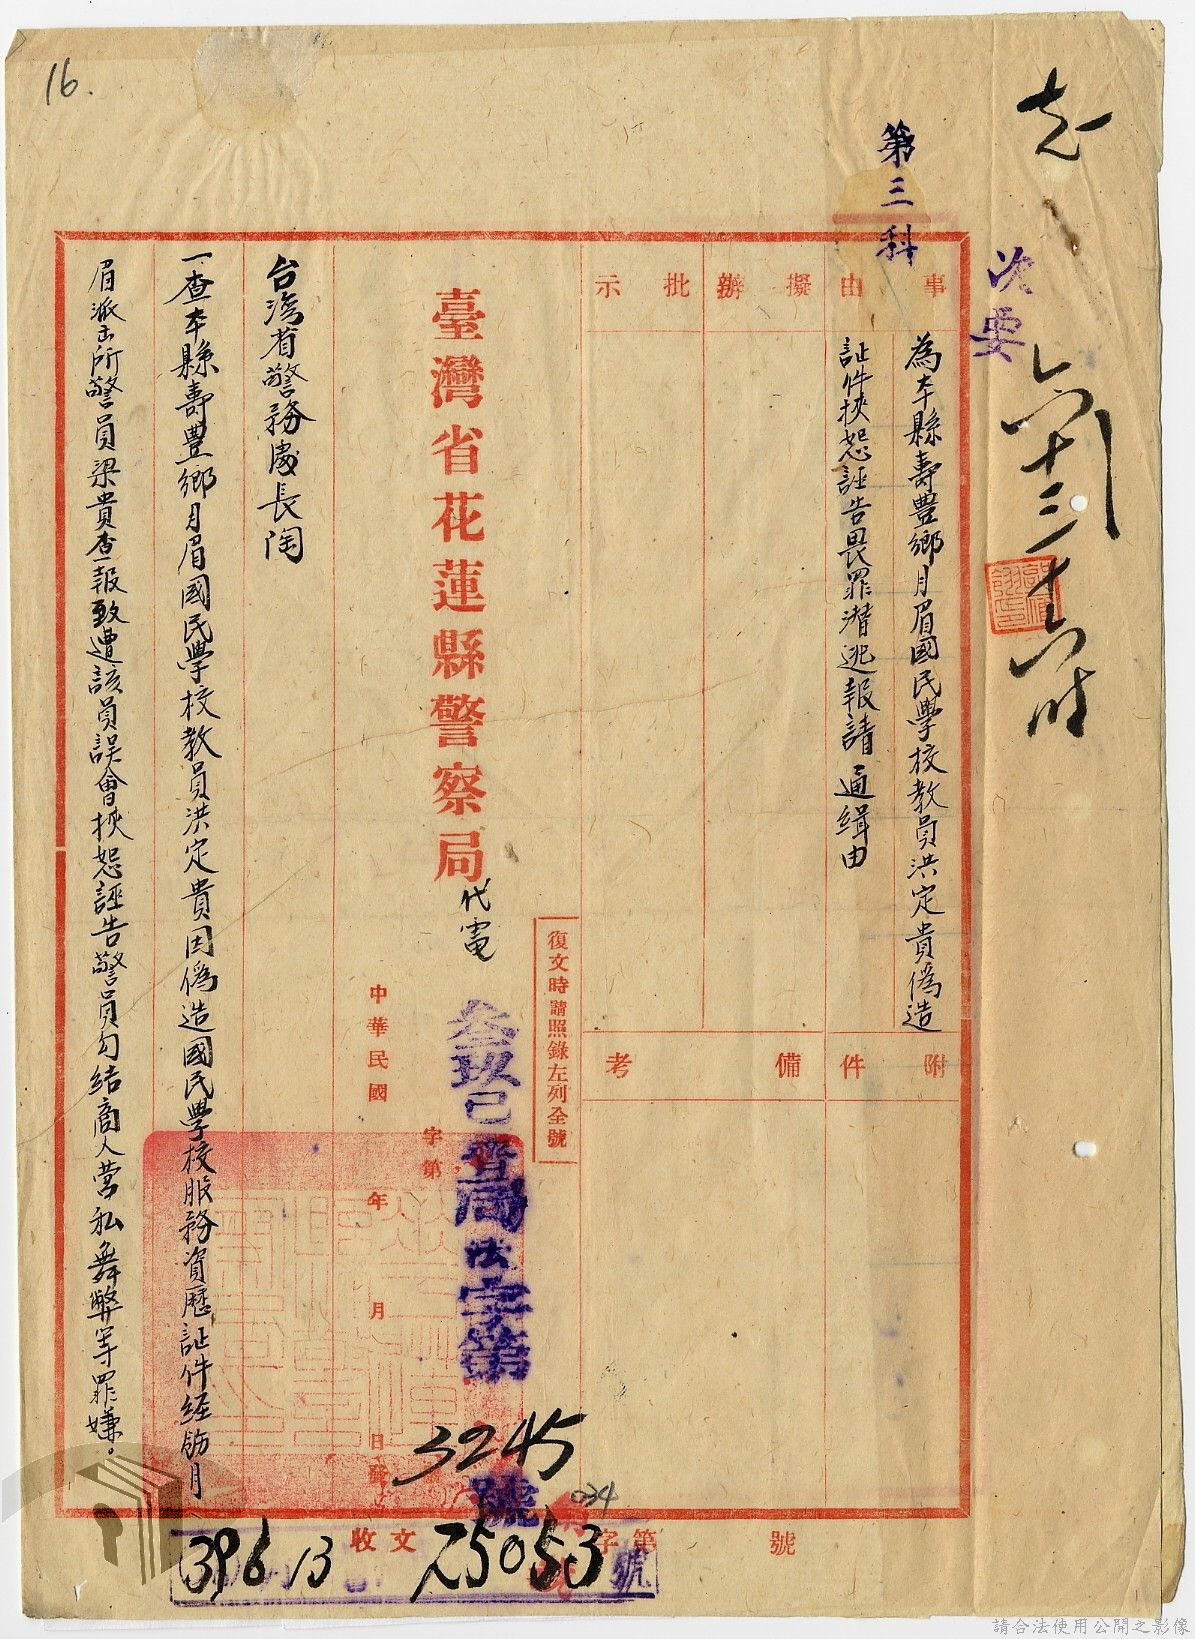 16.
第三科
次要
六、十三、十六時
事由
為本縣壽豊鄉月眉國民學校教員洪定貴偽造
証件挾恕誣告畏罪潛逃報請通緝由
擬辦
批示
附件
備考
復文時請照錄左列全號
臺灣省花蓮縣警察局代電
叁玖巳 警局法字第3245號
中華民國 年 月 日發
字第
台湾省警務處長陶
一查本縣壽豊鄉月眉國民學校教員洪定貴因偽造國民學校服務資歷証件經飭月
眉派出所警員梁貴查報致遭該員誤會挾恕誣告警員勾结商人营私舞弊等罪嫌。
收文 字第 號
39 6 13
75053號
034
請合法使用公開之影像